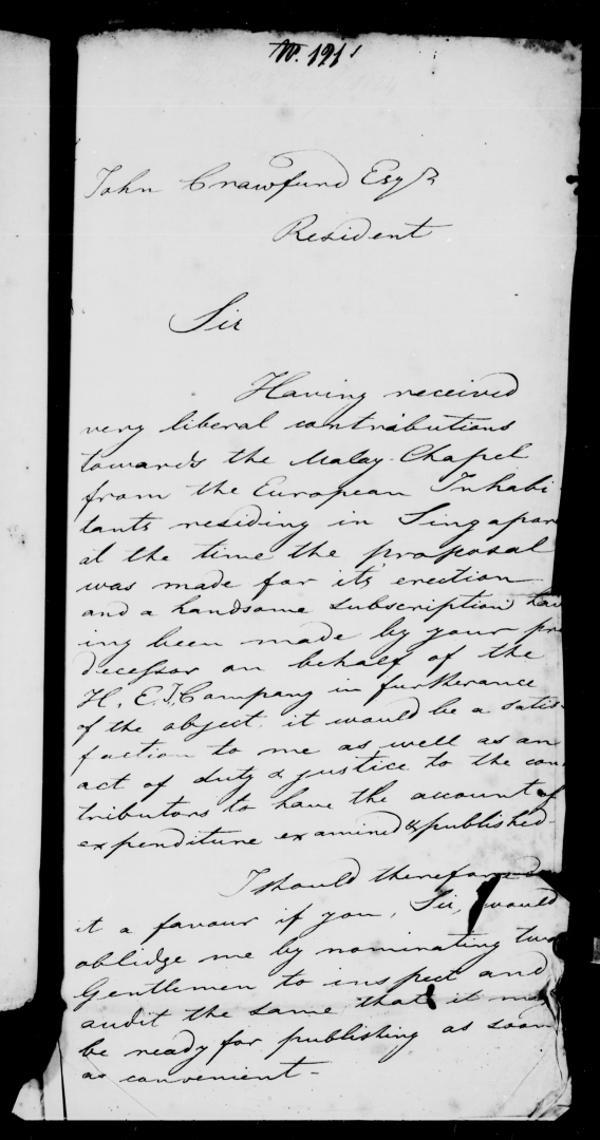 No. 191
John Crawfurd Esqr
Resident
Sir
Having received
very liberal contributions
towards the Malay Chapel
from the European Inhabi-
tants residing in Singapor
at the time the proposal
was made for its erection
and a handsome subscription hav
ing been made by your pre
decessor on behalf of the
H. E. I. Company in furtherance
of the object, it would be a satis-
faction to me as well as an
act of duty & justice to the con-
tributors to have the account of
expenditure examined & published
I should therefore
it a favour if you, Sir, would
oblidge me by nominating two
Gentlemen to inspect and
audit the same that it may
be ready for publishing as soon
as convenient -